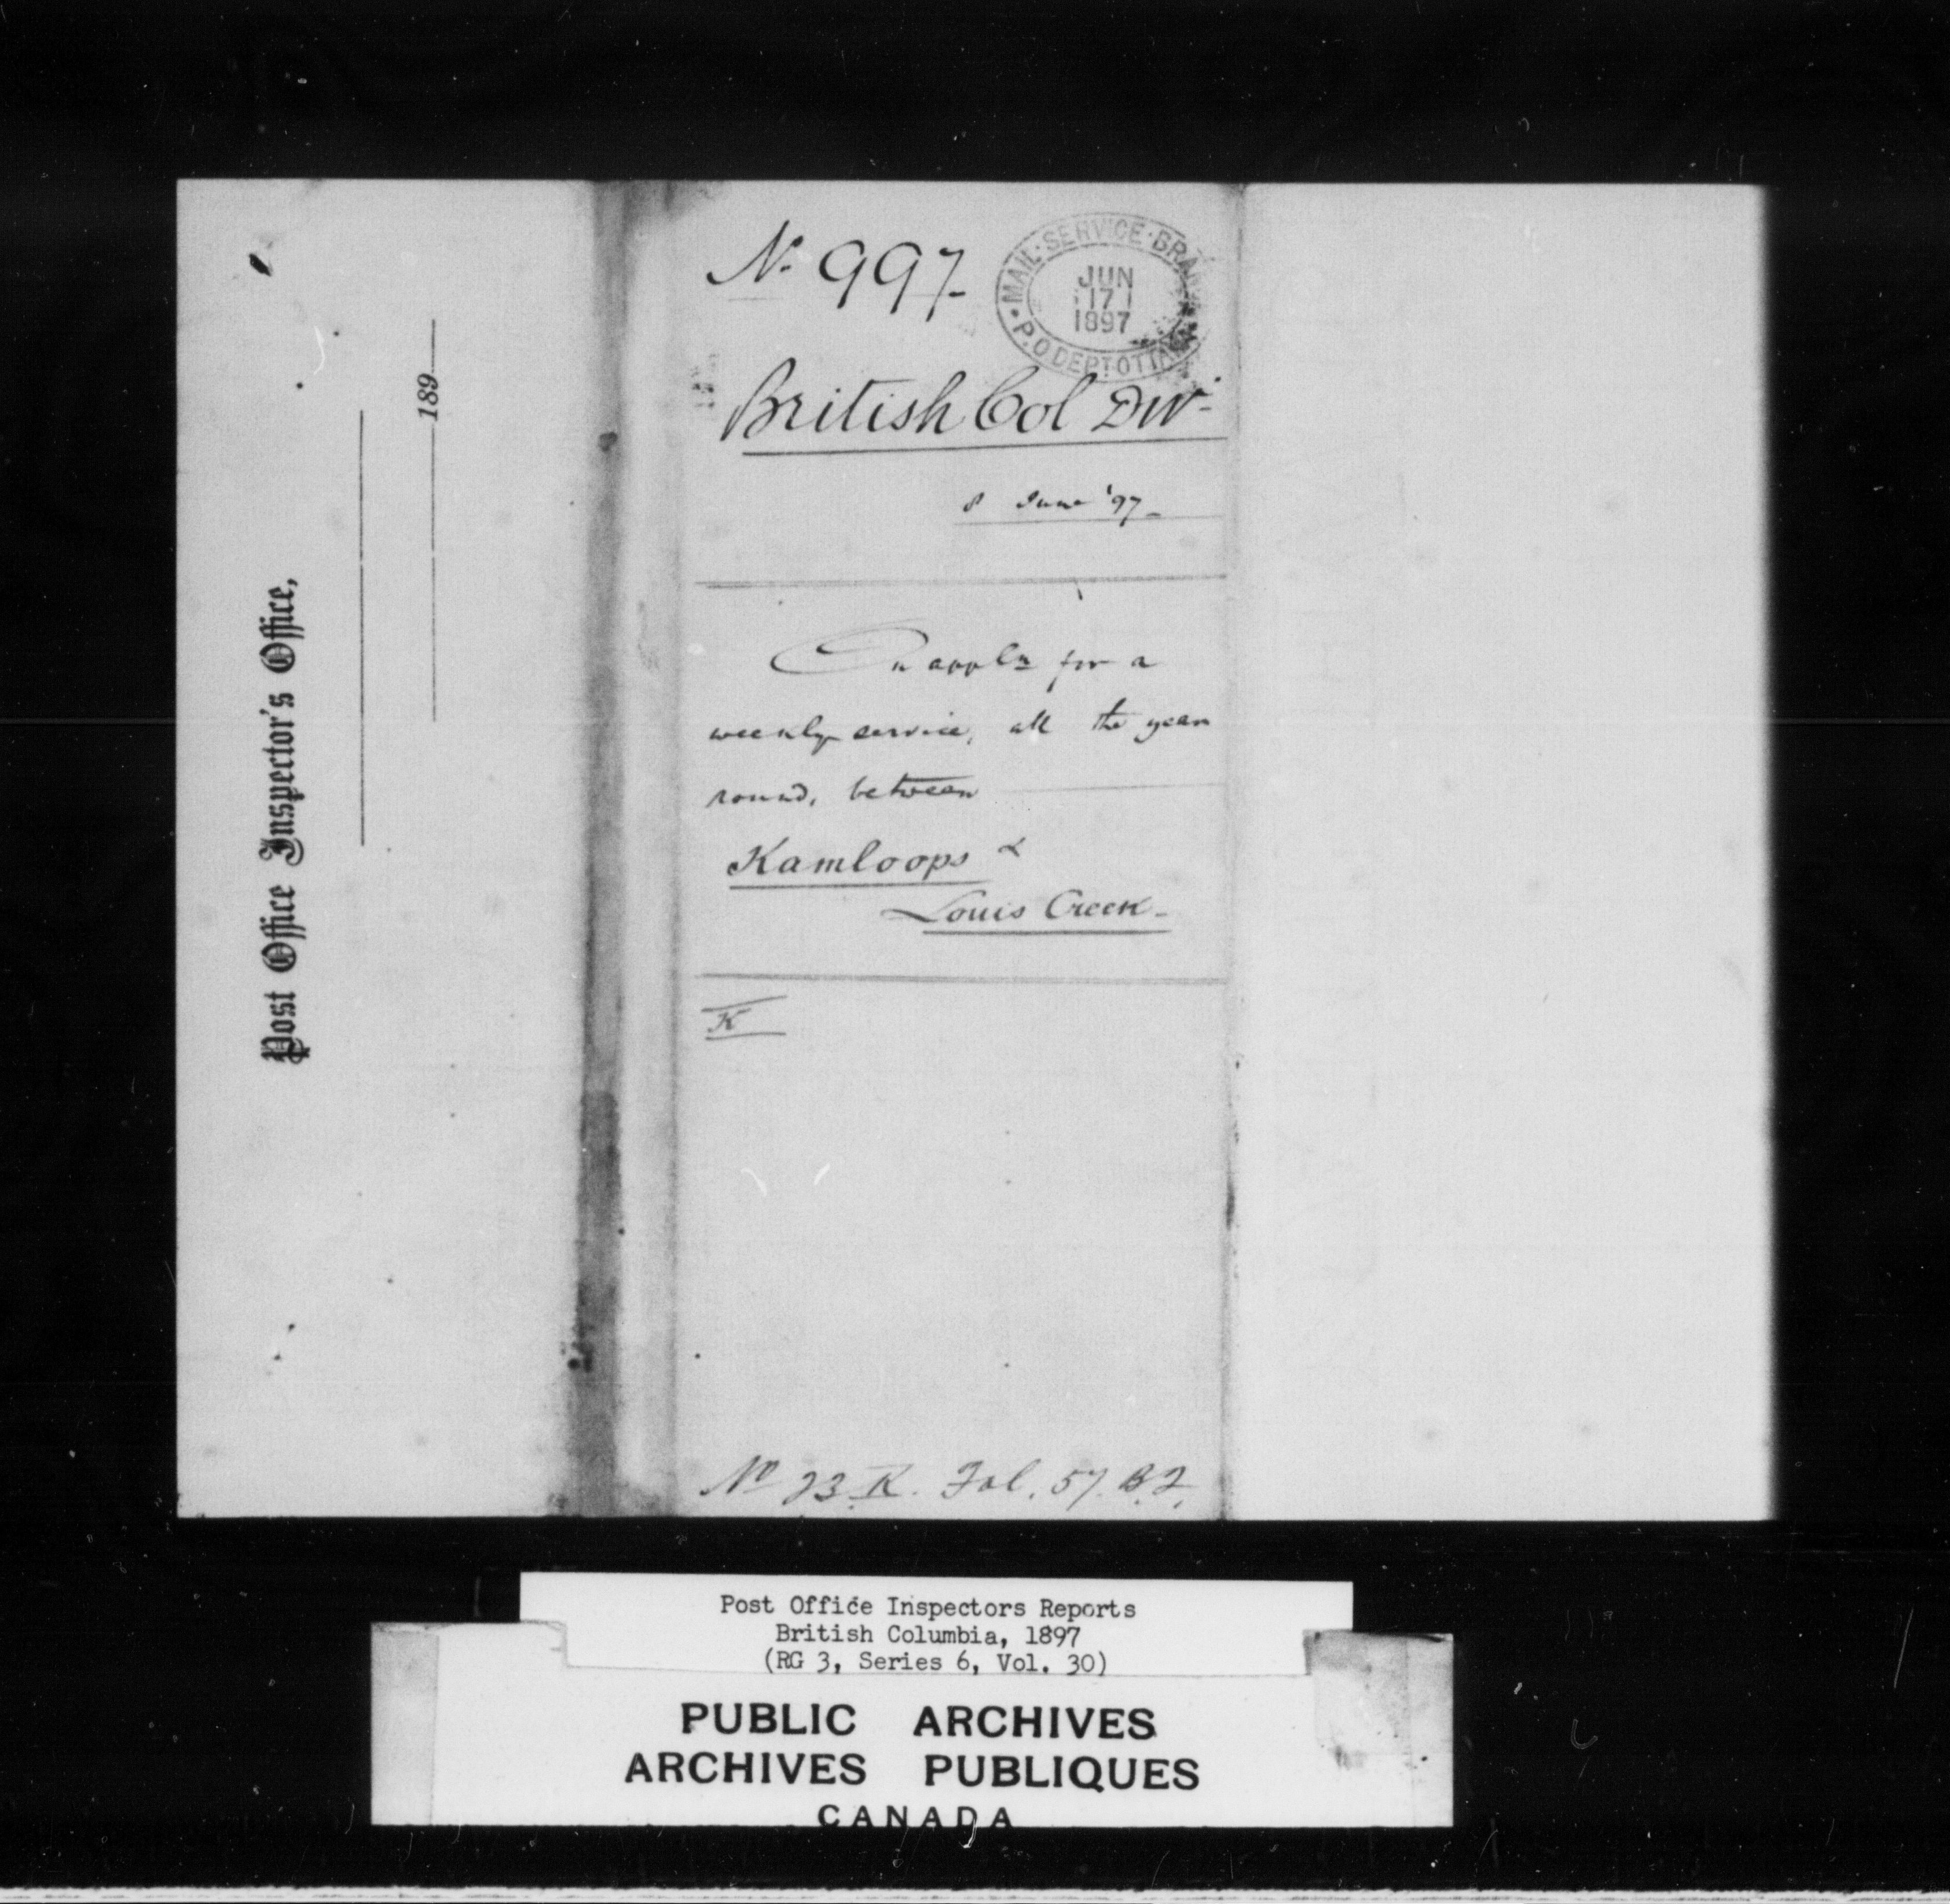 Post Office Inspector's Office,
189
No. 997-
MAIL·SERVICE·BRA
JUN
17
1897
P.O DEPT. OTTAWA
British Col Divn-
8 June '97-
On appln for a
weekly service, all the year
round, between
Kamloops &
Louis Creek-
K
No 23 K. Fol. 57. B.2.
Post Office Inspectors Reports
British Columbia, 1897
(RG 3, Series 6, Vol. 30)
PUBLIC ARCHIVES
ARCHIVES PUBLIQUES
CANADA